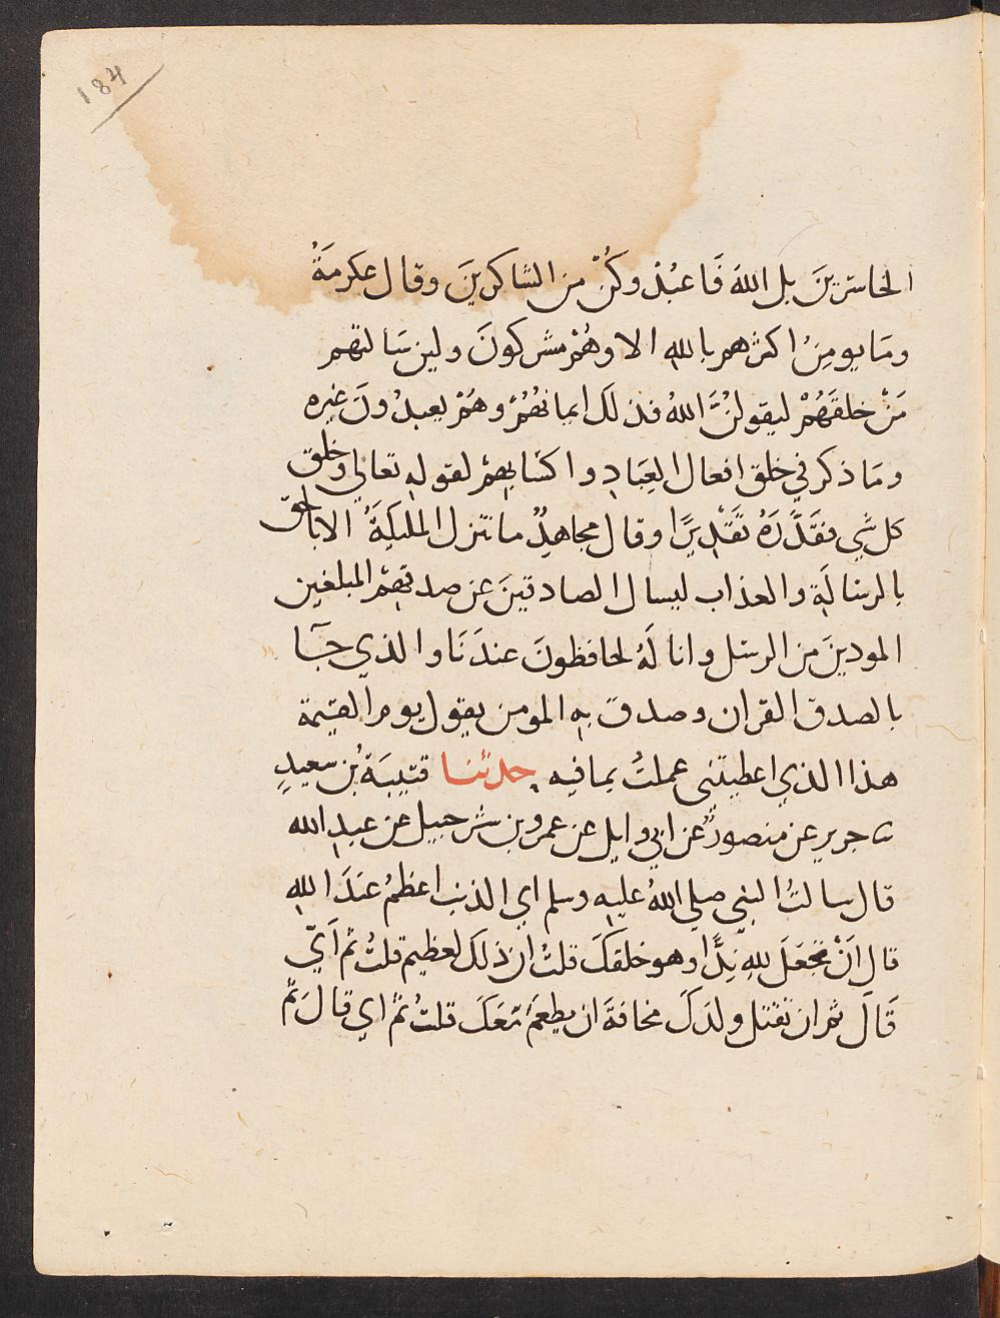 184
الخاسرينَ بل اللهَ فَاعبُدْ وكُنْ من الشاكرينَ وقال عكرمَةُ
ومَا يومِنُ اكثرهم بالله الا وهُمْ مشركونَ ولين سَالتهم
مَنْ خلقَهُمْ ليقولُنَّ اللهُ فذلك ايمانهُمْ وهُمْ يعبدُونَ غيره
ومَا ذكر في خلق افعال العِبَادِ واكتسابِهِمْ لقوله تعالي وخلق
كل شي فقَدَّرَهُ تَقْدِيرًا وقال مجاهدٌ ما تنزل المليكَةُ الا بالحق
بالرسالَةِ والعذاب ليسال الصادقينَ عن صدقهِمْ المبلغين
المودينَ من الرسل وانا لَهُ لحافظونَ عندَنَا والذي جَآ
بالصدق القران وصدق به المومن يقول يوم القيمة
هذا الذي اعطيتني عملتُ بما فيه حدثنا قتيبَةُ بن سعيدٍ
ثنا جرير عن منصورٍ عن ابي وايل عن عمرو بن شرحبيل عن عبدِ الله
قال سالتُ النبي صلي اللهُ عليه وسلم اي الذنب اعظمُ عندَ اللهِ
قال اَنْ تجعَلَ للهِ نِدًّا وهو خلقكَ قلتُ ان ذلك لعظيم قلتُ ثم اَيّ
قَالَ ثم ان تقتل ولدَكَ مخافةَ ان يطعَمَ مَعَكَ قلتُ ثم اي قالَ ثم